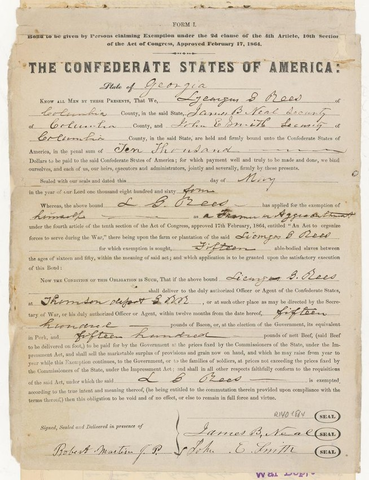 FORM I.
Bond to be given by Persons claiming Exemption under the 2d clause of the 4th Article, 10th Section
of the Act of Congress, Approved February 17, 1864.
THE CONFEDERATE STATES OF AMERICA:
State of Georgia
KNOW ALL MEN BY THESE PRESENTS, That We, Lycurgus G. Rees of
Columbia County, in the said State, James B. Neal Security
of Columbia County, and John E Smith Security of
Columbia County, in the said State, are held and firmly bound unto the Confederate States of
America, in the penal sum of Ten Thousand
Dollars to be paid to the said Confederate States of America; for which payment well and truly to be made and done, we bind
ourselves, and each of us, our heirs, executors and administrators, jointly and severally, firmly by these presents.
Sealed with our seals and dated this day of May
in the year of our Lord one thousand eight hundred and sixty four
Whereas, the above bound L. G. Rees has applied for the exemption of
himself as a Farmer or Agriculturist
under the fourth article of the tenth section of the Act of Congress, approved 17th February, 1864, entitled "An Act to organize
forces to serve during the War," there being upon the farm or plantation of the said Lycurgus G. Rees
for which exemption is sought, Fifteen able-bodied slaves between the
ages of sixteen and fifty, within the meaning of said act; and which application is to be granted upon the satisfactory
execution of this Bond:
Now THE CONDITION OF THIS OBLIGATION IS SUCH, That if the above bound Lycurgus G. Rees
shall deliver to the duly authorized Officer or Agent of the Confederate States,
at Thomson depot G.R.R. or at such other place as may be directed by the Secre-
tary of War, or his duly authorized Officer or Agent, within twelve months from the date hereof, fifteen
hundred pounds of Bacon, or, at the election of the Government, its equivalent
in Pork, and fifteen hundred pounds of nett Beef, (said Beef
to be delivered on foot,) to be paid for by the Government at the prices fixed by the Commissioners of the State, under the Im-
pressment Act, and shall sell the marketable surplus of provisions and grain now on hand, and which he may raise from year to
year while this Exemption continues, to the Government, or to the families of soldiers, at prices not exceeding the prices fixed by
the Commissioners of the State, under the Impressment Act; and shall in all other respects faithfully conform to the requisitions
of the said Act, under which the said L G Rees is exempted
according to the true intent and meaning thereof, (he being entitled to the commutation therein provided upon compliance with the
terms thereof,) then this obligation to be void and of no effect, or else to remain in full force and virtue.
Signed, Sealed and Delivered in presence of
James B. Neal SEAL
Robert Martin J P John E. Smith SEAL
SEAL